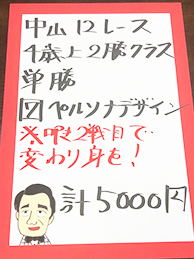 中山12レース
4歳上2勝クラス
単勝
図ペルソナデザイン
※叩き2戦目で
変わり身を!
計5000円